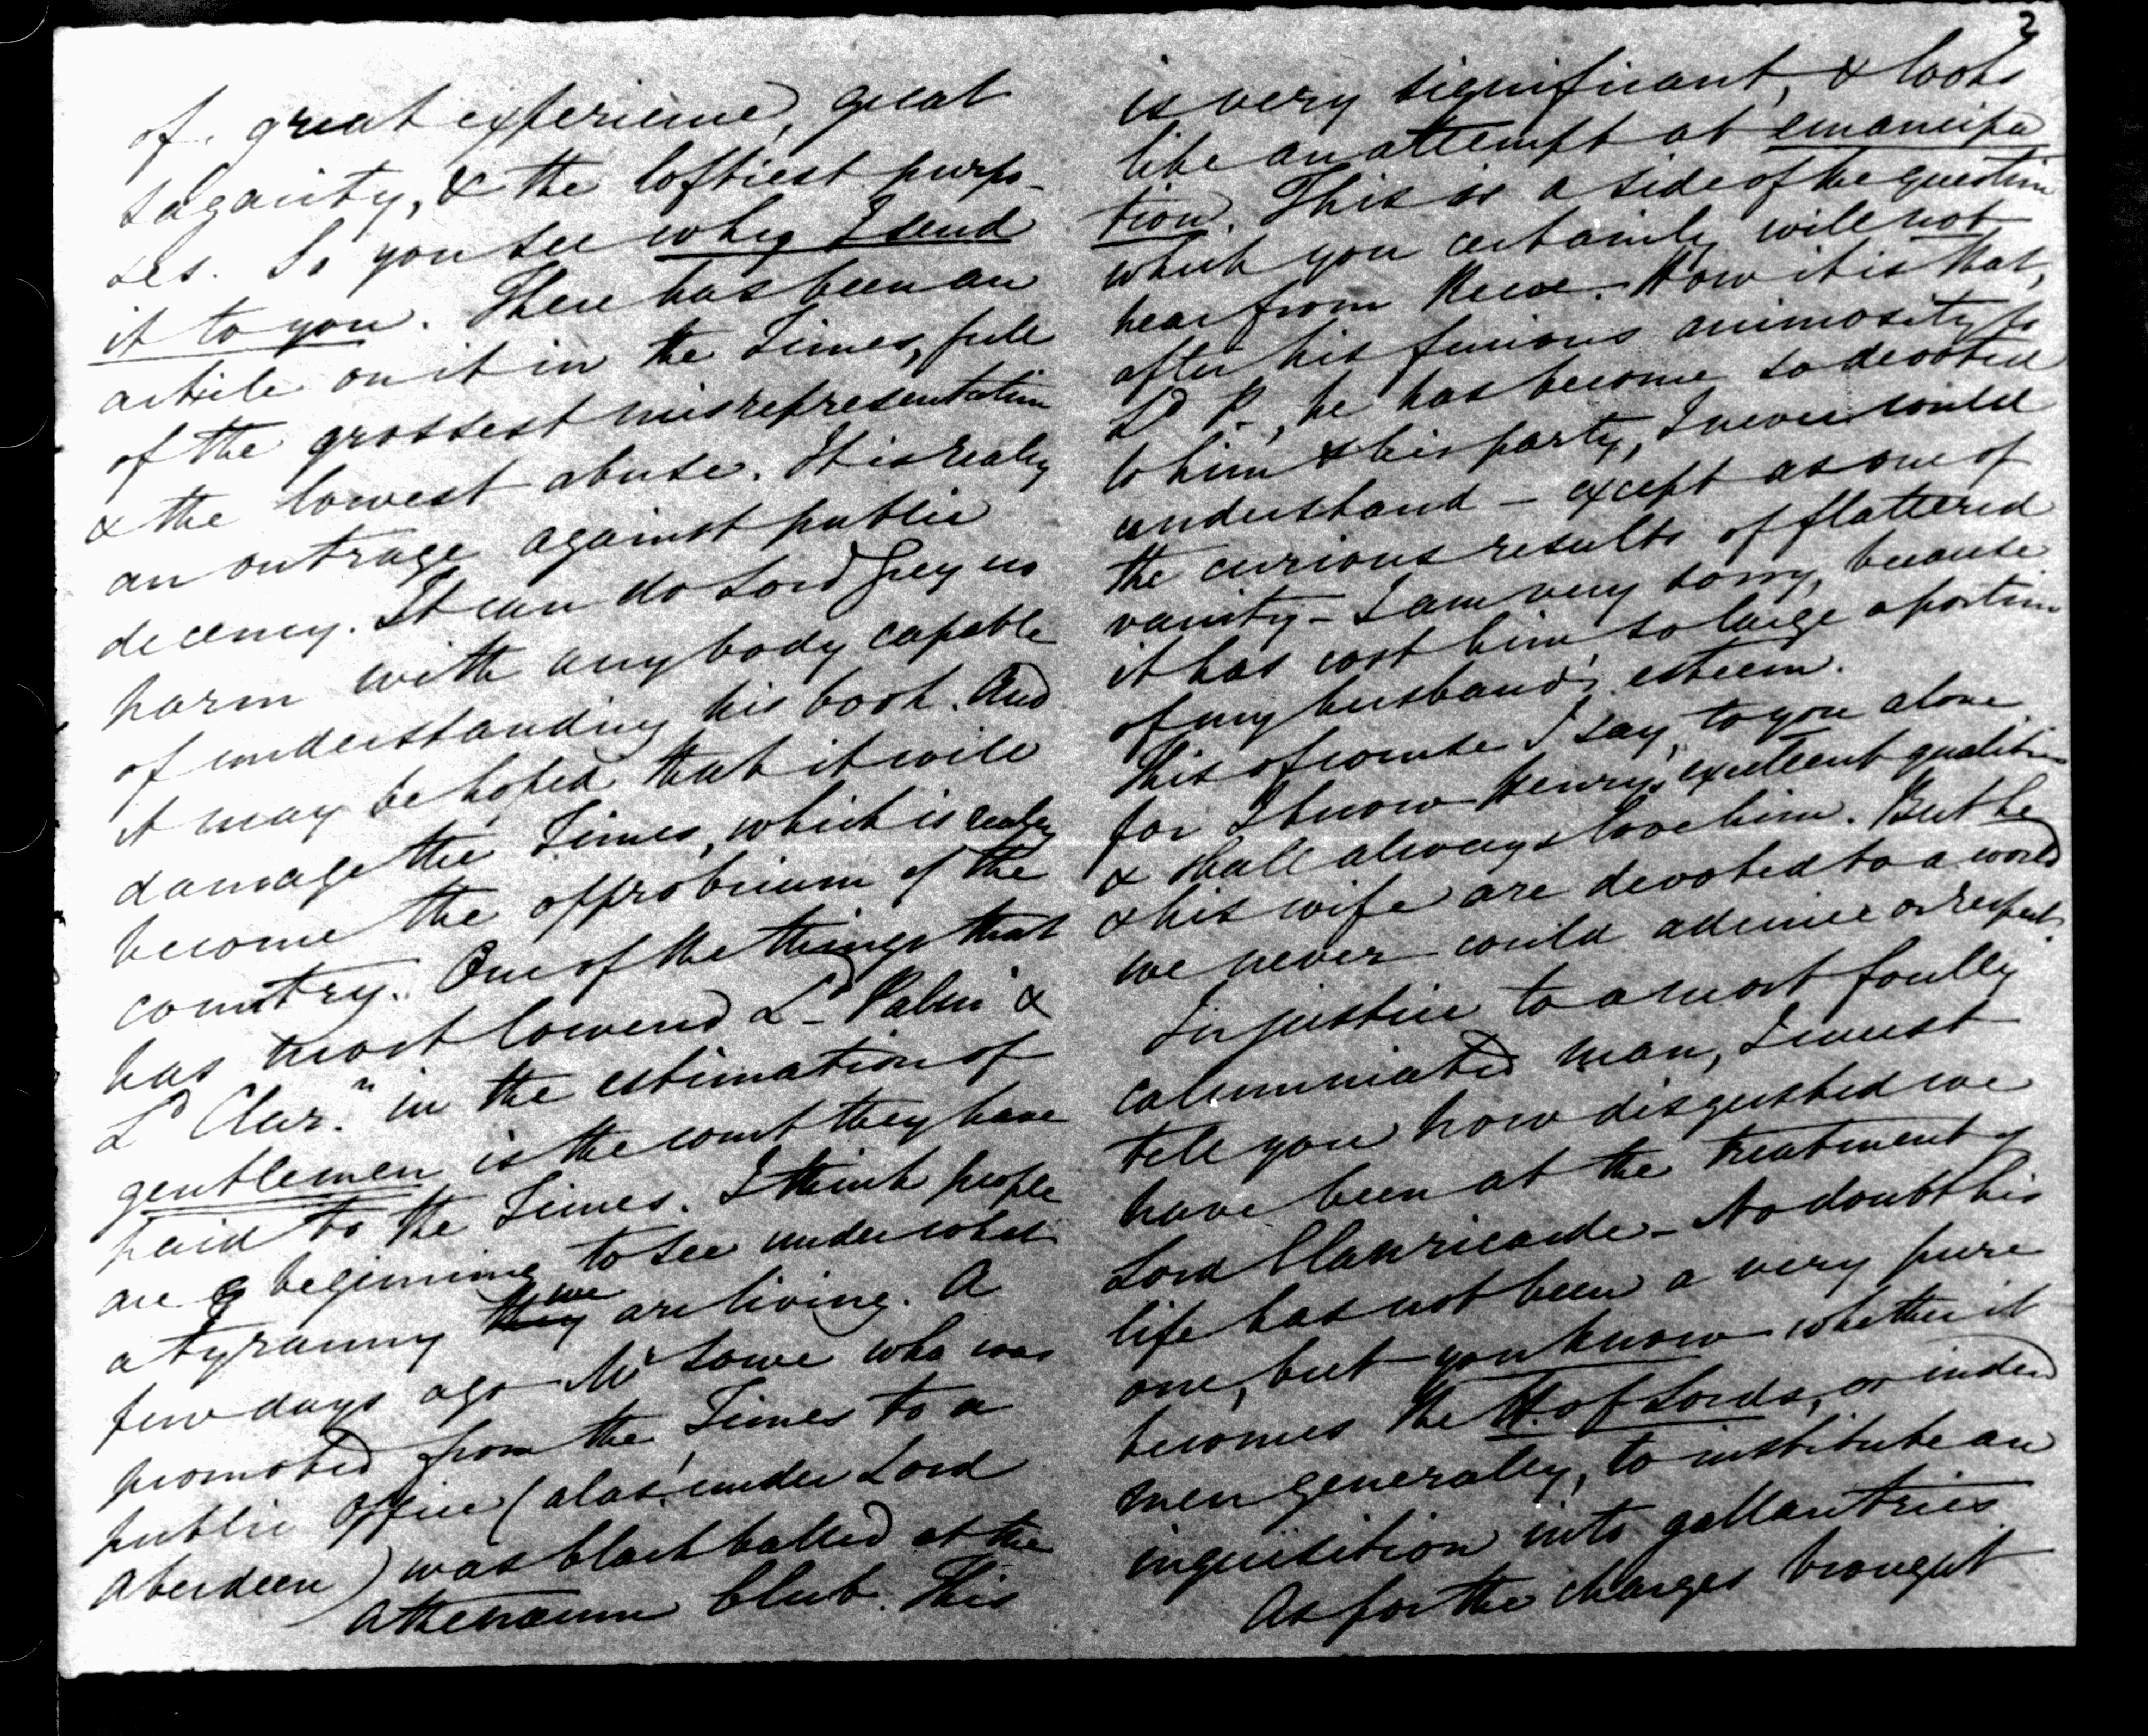 of great experience, great
sagacity, & the loftiest purpo-
ses. So you see why I send
it to you. There has been an
article on it in the Times, full
of the grossest misrepresentation
& the lowest abuse. It is really
an outrage against public
decency. It can do Lord Grey no
harm with any body capable
of understanding his book. And
it may be hoped that it will
damage the Times, which is really
become the opprobrium of the
country. One of the things that
has most lowered Ld Palmn &
Ld Clarn in the estimation of
gentlemen is the court they have
paid to the Times. I think people
are beginning to see under what
a tyranny they we are living. A
few days ago Mr Lowe who was
promoted from the Times to a
public office (alas! under Lord
Aberdeen) was blackballed at the
Athenaeum Club. This
2
is very significant, & looks
like an attempt at emancipa
tion. This is a side of the question
which you certainly will not
hear from Reeve. How it is that,
after his furious animosity to
Ld P., he has become so devoted
to him & his party, I never could
understand - except as one of
the curious results of flattered
vanity - I am very sorry, because
it has cost him so large a portion
of my husband's esteem.
This of course I say, to you alone
for I know Henry's excellent qualities
& shall always love him. But he
& his wife are devoted to a world
we never could admire or respect.
In justice to a most foully
calumniated man, I must
tell you how disgusted we
have been at the treatment of
Lord Clanricarde - No doubt his
life has not been a very pure
one, but you know whether it
becomes the H. of Lords, or indeed
men generally, to institute an
inquisition into gallantries.
As for the charges brought